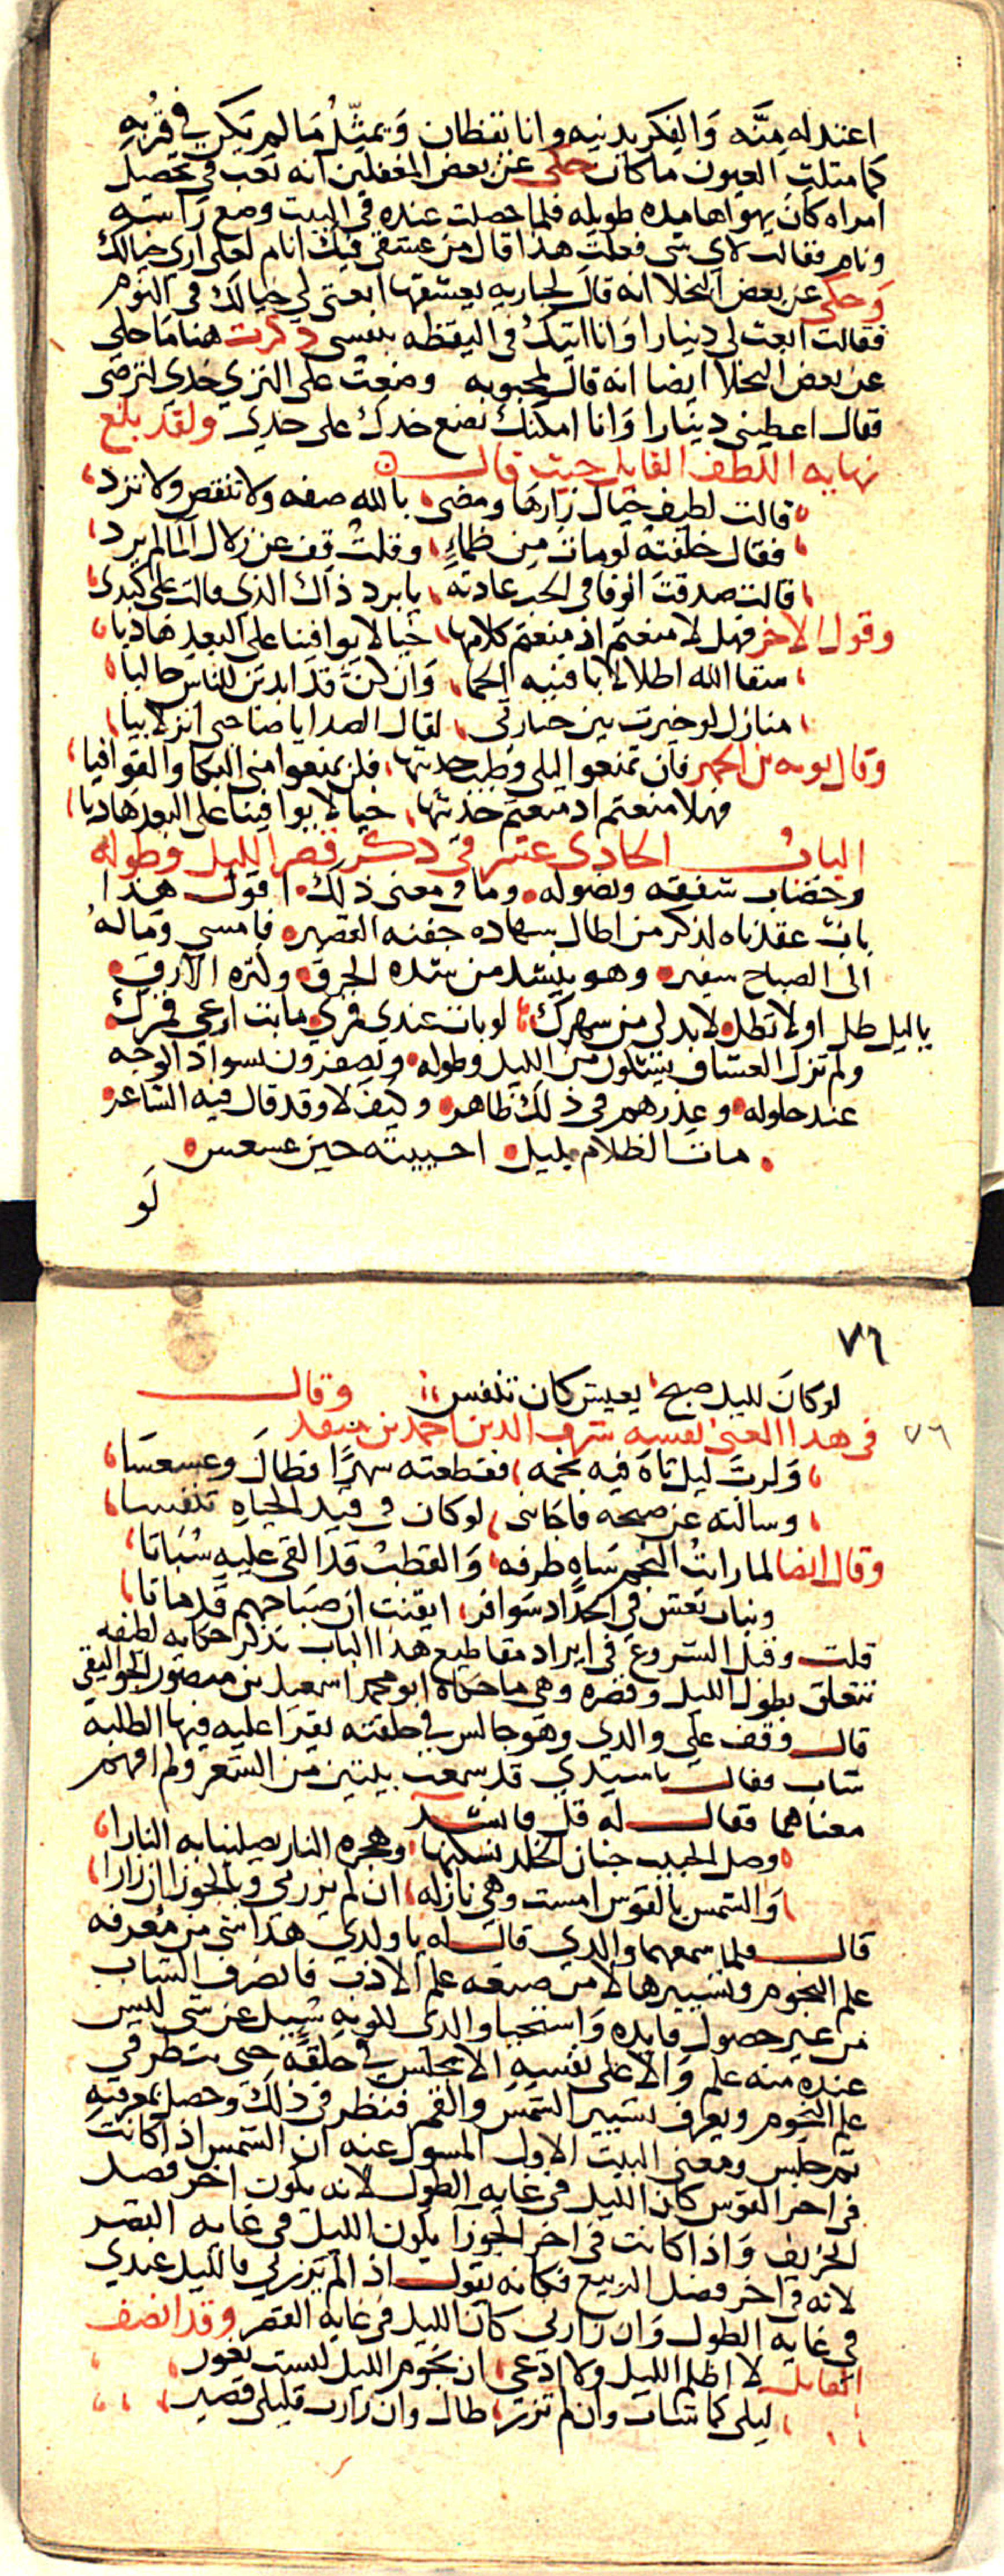 اعتد له منّه وَالفكر يدنيه وانا يقظان وَيمثّلُ مَا لم يكن في قربه
كما مثلت العيون ما كان حكى عن بعض المغفلين انه تعب في تحصيل
امراه كان يهواها مده طويله فلما حصلت عنده في البيت وضع راسه
ونام فقالت لاي شى فعلت هذا قال من عشقي فيك انام لعلى ارى خيالك
وَحكى عن بعض البخلا انه قال لجاريه يعشقها ابعثى لي خيالك في النوم
فقالت ابعث لى دينارا وَانا اتيك في اليقظه بنفسى ذكرت هنا ما حكى
عن بعض البخلا ايضا انه قال لمحبوبه وضعت على الثرى خدى لترضى
فقال اعطينى دينارا وَانا امكنك تضع خدك على خدى ولقد بلغ
نهايه اللطف القايل حيث قال
قالت لطيف خيال زارها ومضى بالله صفه ولا تنقص ولا تزد
فقال خلفته لو مات من ظماءٍ وقلتُ قف عن زلال الما لم يرد
قالت صدقت الوفا في الحب عادته يا برد ذاك الذي قالت على كبدى
وقول الاخر فهل لا منعتم اذ منعتم كلامها خيالا يوافينا على البعد هاديا
سقا الله اطلالا باقنيه الحما وَان كنّ قد ابدين للناس حاليا
منازل لو خيرت بين حبارتي لقال الصدا يا صاحبى انزلا بيا
وقال توبه بن الحمير فان تمنعوا ليلى وطيب حديثها فلن تمنعوا منى البكا والقوافيا
فهلا منعتم اذ منعتم حديثها خيالا يوافينا على البعد هاديا
الباب الحادى عشر في ذكر قصر الليل وطوله
وخضاب شفقه ونصوله وما في معنى ذلك اقول هذا
باب عقدناه لذكر من اطال سهاده جفنه القصير فامسى وَماله
الى الصباح سفير وهو ينشد من شده الحرق وكثره الارق
يا ليل طل او لا تطل لابد لى من سهرك لو بات عندى قمري ما بت ارعى قمرك
ولم تزل العشاق يشكون من الليل وطوله ويصفرون لسواد الوجه
عند حلوله وعذرهم في ذلك ظاهر وكيف لا وقد قال فيه الشاعر
مات الظلام بليل احييته حين عسعس
لَو
٧٦
لو كان لليل صبح يعيش كان تنفس وقال
٧٦
في هذا المعنى نفسه شرف الدين احمد بن منقذ
وَلرب ليل تاه فيه نجمه فقطعته سهرًا فطال وعسعسَا
وسالته عن صبحه فاجابنى لو كان في قيد الحياه تنفسا
وقال ايضا لما رايتُ النجم سَاهٍ طرفه وَالقطب قد القى عليه سُبَاتا
وبنات نعش في الحداد سوافر ايقنت ان صبَاحهم قد ماتا
قلت وقبل الشروع في ايراد مقاطيع هذا الباب نذكر حكايه لطيفه
تتعلق بطول الليل وقصره وهي ما حكاه ابو محمد اسمعيل بن منصور الجواليقي
قال وقف على والدى وهو جالس في حلقته يقرا عليه فيها الطلبه
شاب فقال يا سيدي قد سمعت بيتين من الشعر ولم افهم
معناهما فقال له قل فانشد
وصل الحبيب جنان الخلد نسكنها وهجره النار يصلينا به النارا
وَالشمس بالقوس امست وهي نازله ان لم يزرنى وبالجوزا ان زارا
قال فلما سمعهما والدي قال له يا ولدي هذا شى من معرفه
علم النجوم وتسييرها لا من صنعه علم الادب فانصرف الشاب
من غير حصول فايده وَاستحيا والدى لكونه سُيل عن شى ليس
عنده منه علم وَالا على نفسه الا يجلس في حلقة حتى ينظر في
علم النجوم ويعرف تسيير الشمس والقمر فنظر في ذلك وحصل معرفته
ثم جلس ومعنى البيت الاول المسول عنه ان الشمس اذا كانت
في اخر القوس كان الليل في غايه الطول لانه يكون اخر فصل
الخريف وَاذا كانت في اخر الجوزا يكون الليل في غايه القصر
لانه في اخر فصل الربيع فكانه يقول اذا لم يزرنى فالليل عندي
في غايه الطول وَان زارنى كان الليل في غايه القصر وقد انصف
القايل لا اظلم الليل ولا ادعى ان نجوم الليل ليست تغور
ليلى كما شات وان لم تزر طال وان زارت فليلى قصير